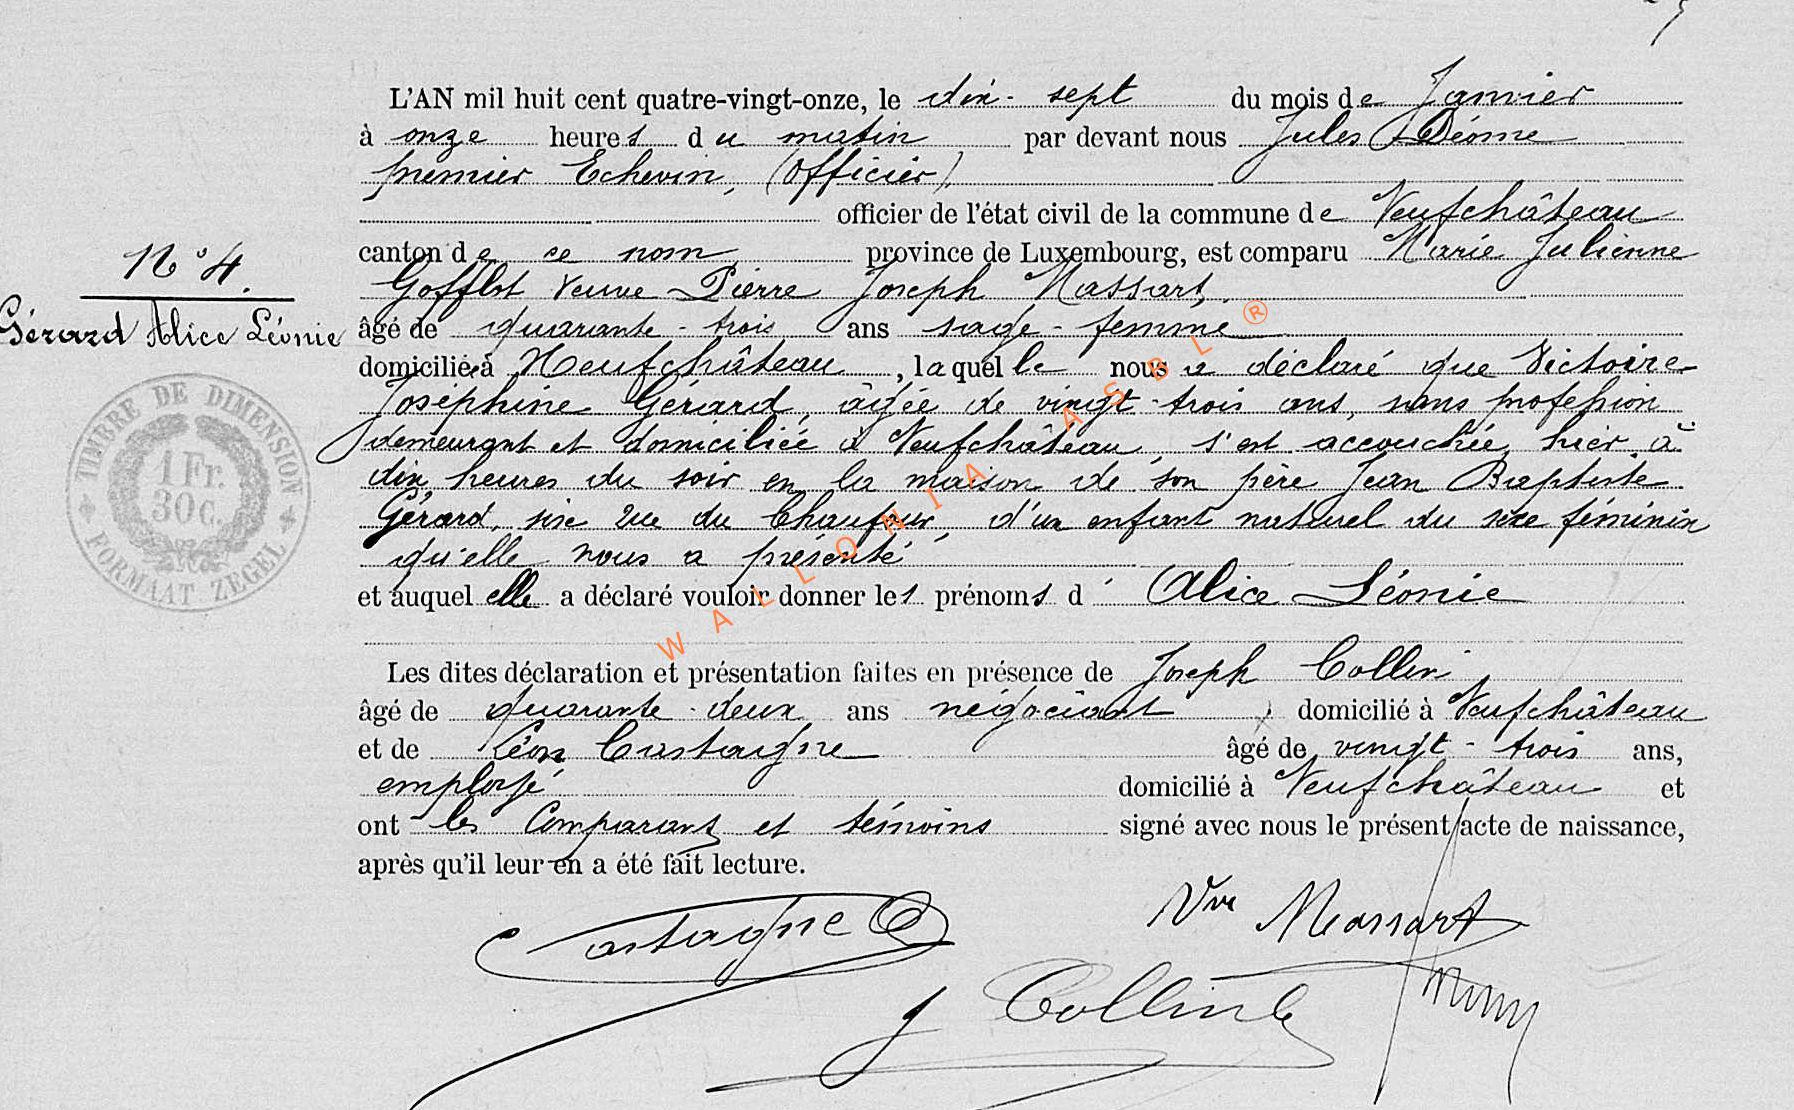 L'AN mil huit cent quatre-vingt-onze, le dix-sept du mois de Janvier
à onze heures du matin par devant nous Jules Déome
premier Echevin, (officier)
officier de l'état civil de la commune de Neufchâteau
N° 4.
canton de ce nom province de Luxembourg, est comparu Marie Julienne
Gofflot Veuve Pierre Joseph Massart,
Gérard Alice Léonie
âgé de quarante-trois ans sage-femme
domiciliée à Neufchâteau, laquelle nous a déclaré que Victoire
Joséphine Gérard, âgée de vingt-trois ans, sans profession
demeurant et domiciliée à Neufchâteau, s'est accouchée hier à
dix heures du soir en la maison de son père Jean Baptiste
Gérard, sise rue du Chaufour, d'un enfant naturel du sexe féminin
qu'elle nous a présenté
et auquel elle a déclaré vouloir donner les prénoms d' Alice Léonie
TIMBRE DE DIMENSION
1 Fr.
30 C.
FORMAAT ZEGEL
WALLONIA ASBL ®
Les dites déclaration et présentation faites en présence de Joseph Collin,
âgé de quarante-deux ans négociant, domicilié à Neufchâteau
et de Léon Castaigne âgé de vingt-trois ans,
employé domicilié à Neufchâteau et
ont les Comparant et témoins signé avec nous le présent acte de naissance,
après qu'il leur en a été fait lecture.
Vve Massart
Castagne
J Collin